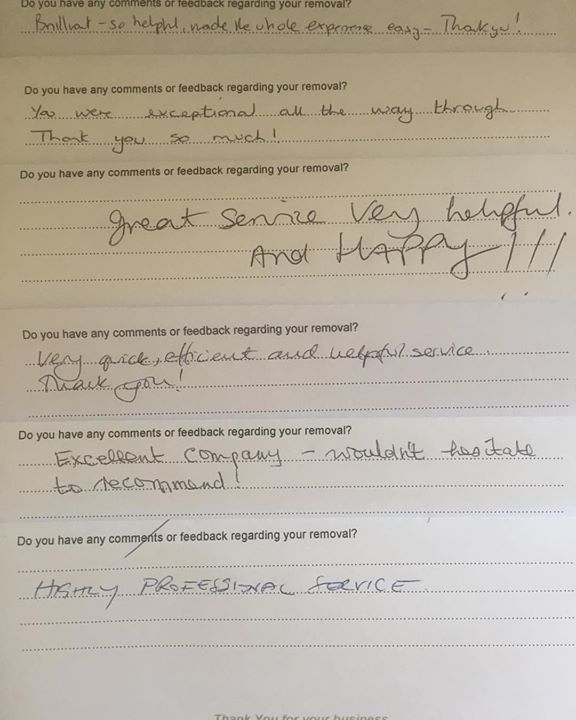 Do you have any comments or feedback regarding your removal?
Brilliant - so helpful, made the whole experience easy - Thankyou!
Do you have any comments or feedback regarding your removal?
You were exceptional all the way through
Thank you so much!
Do you have any comments or feedback regarding your removal?
great service Very helpful.
And HAPPY!!!
Do you have any comments or feedback regarding your removal?
Very quick, efficient and helpful service.
Thank you!
Do you have any comments or feedback regarding your removal?
Excellent company - wouldn't hesitate
to recommend!
Do you have any comments or feedback regarding your removal?
HIGHLY PROFESSIONAL SERVICE
Thank You for your business